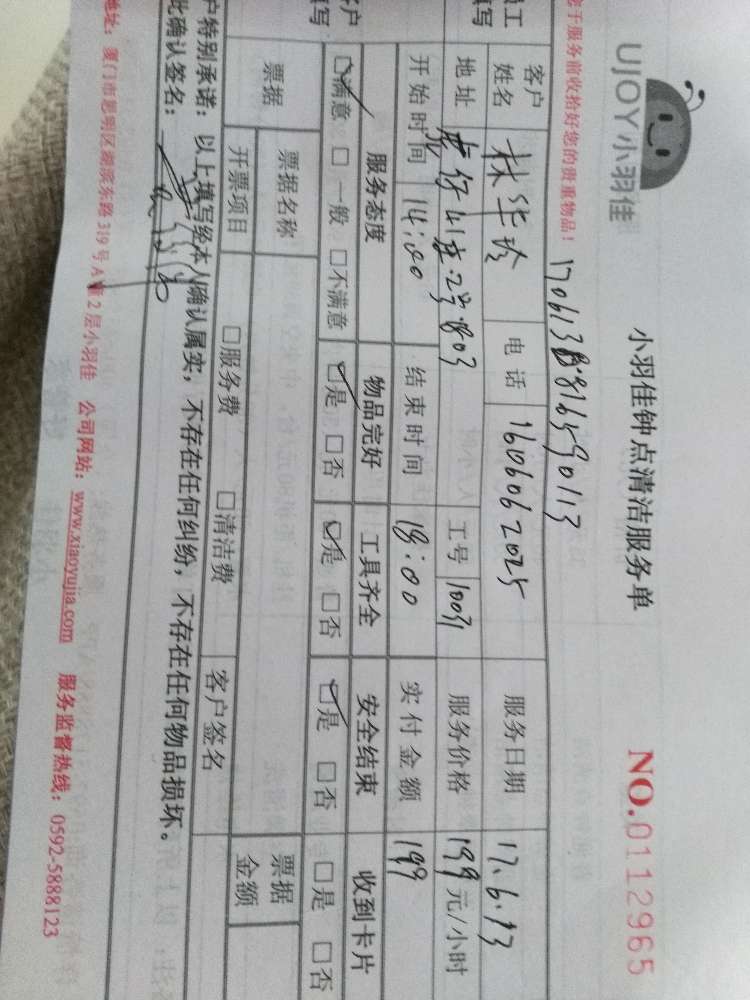 UJOY小羽佳
小羽佳钟点清洁服务单
NO.0112965
您于服务前收拾好您的贵重物品！
客户姓名 林华玲 电话 1606062025 服务日期 17.6.13
地址 2号803 工号 10031 服务价格 199 元/小时
开始时间 14:00 结束时间 18:00 实付金额 199
服务态度 物品完好 工具齐全 安全结束 收到卡片
☑满意 □一般 □不满意 ☑是 □否 ☑是 □否 ☑是 □否 □是 □否
票据 票据名称 票据金额
开票项目 □服务费 □清洁费 客户签名
户特别承诺：以上填写经本人确认属实，不存在任何纠纷，不存在任何物品损坏。
此确认签名：
地址：厦门市思明区湖滨东路319号A 2层小羽佳 公司网站：www.xiaoyujia.com 服务监督热线：0592-5888123